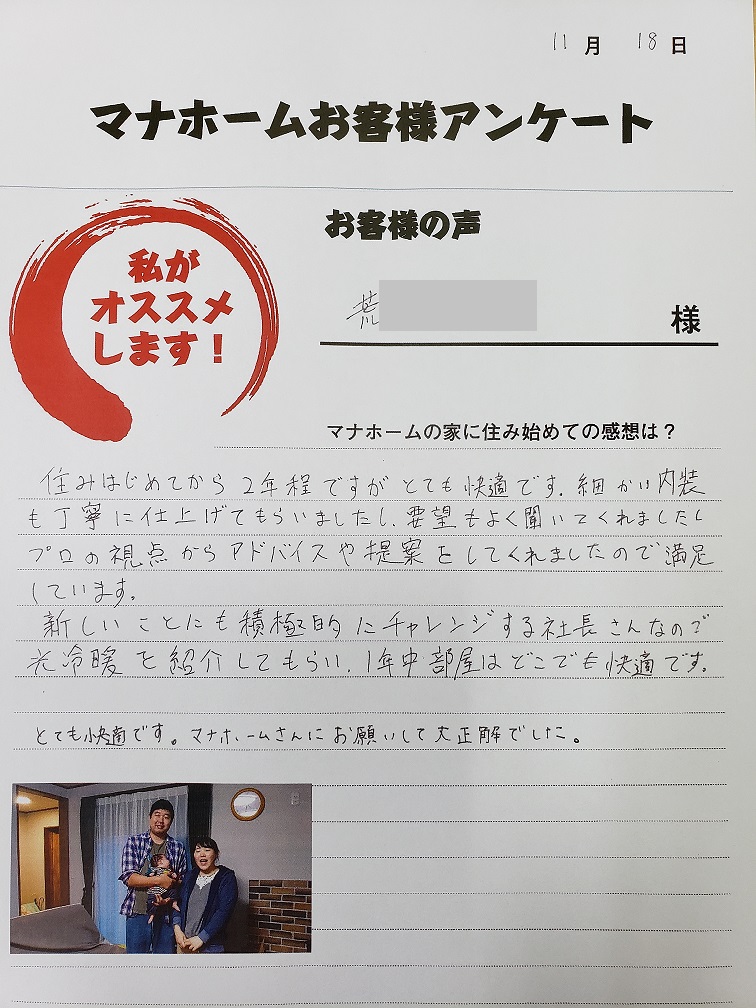 11月 18日
マナホームお客様アンケート
私が
オススメ
します！
お客様の声
荒 様
マナホームの家に住み始めての感想は？
住みはじめてから2年程ですがとても快適です。細かい内装
も丁寧に仕上げてもらいましたし、要望もよく聞いてくれましたし
プロの視点からアドバイスや提案をしてくれましたので満足
しています。
新しいことにも積極的にチャレンジする社長さんなので
光冷暖を紹介してもらい、1年中部屋はどこでも快適です。
とても快適です。マナホームさんにお願いして大正解でした。